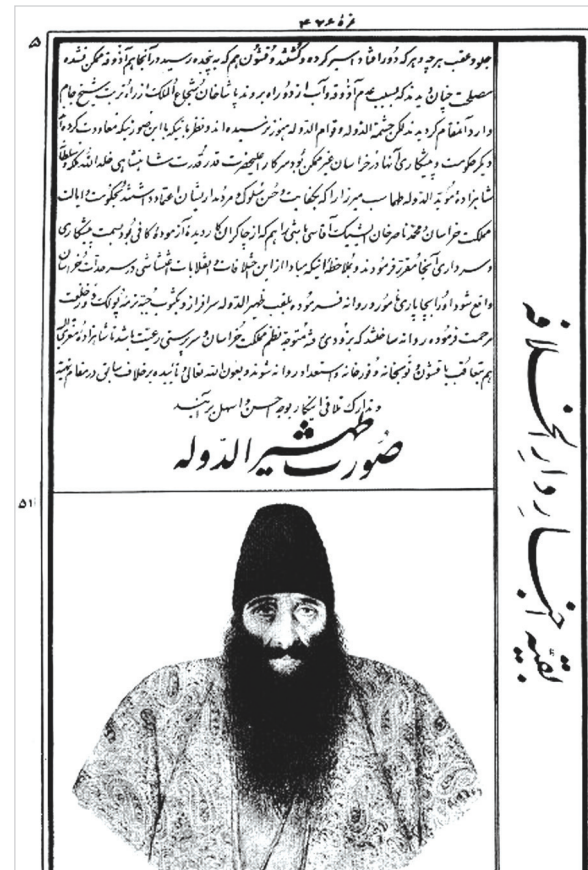 نمرهٔ ۴۷۶
۵
جلو و عقب هر چه و هر که دور افتاد اسیر کرده و کشتند و قشون هم که به پنجده رسید در آنجا هم آذوقه ممکن نشده
مصلحت چنان دیدند که بسبب عدم آذوقه و آب از دو راه بروند پاشاخان شجاع الملک از راه تربت شیخ جام
وارد آنمقام گردیدند لکن حشمة الدوله و قوام الدوله هنوز نرسیده‌اند و نظر باینکه با این صورتیکه معاودت کرده‌اند
دیگر حکومت و پیشکاری آنها در خراسان غیر ممکن بود سرکار اعلیحضرت قدر قدرت شاهنشاهی خلد الله ملکه و سلطانه
شاهزاده مؤید الدوله طهماسب میرزا را که بکفایت و حسن سلوک و مردمداری ایشان اعتماد داشتند بحکومت و ایالت
مملکت خراسان و محمد ناصرخان ایشیک آقاسی باشی را هم که از چاکران کاردیده و آزموده و کافی بود بسمت پیشکاری
و سرداری آنجا مقرر فرمودند و بملاحظه اینکه مبادا از این اختلافات و انقلابات اغتشاشی در سرحدات خراسان
واقع شود او را بچاپاری مأمور و روانه فرموده بلقب ظهیر الدوله سرافراز و یکثوب جبه ترمه خلعت
مرحمت فرموده روانه ساختند که بزودی رفته متوجه نظم مملکت خراسان و سرپرستی رعیت باشد تا شاهزاده معزی الیه
هم متعاقب با قشون و توپخانه و قورخانه و استعداد روانه شوند و بعون الله تعالی و تأییده برخلاف سابق در مقام تهیه
و تدارک تلافی اینکار بوجه احسن و اسهل برآیند
صورت ظهیر الدوله
۵۱
بقیه اخبار دار الخلافه